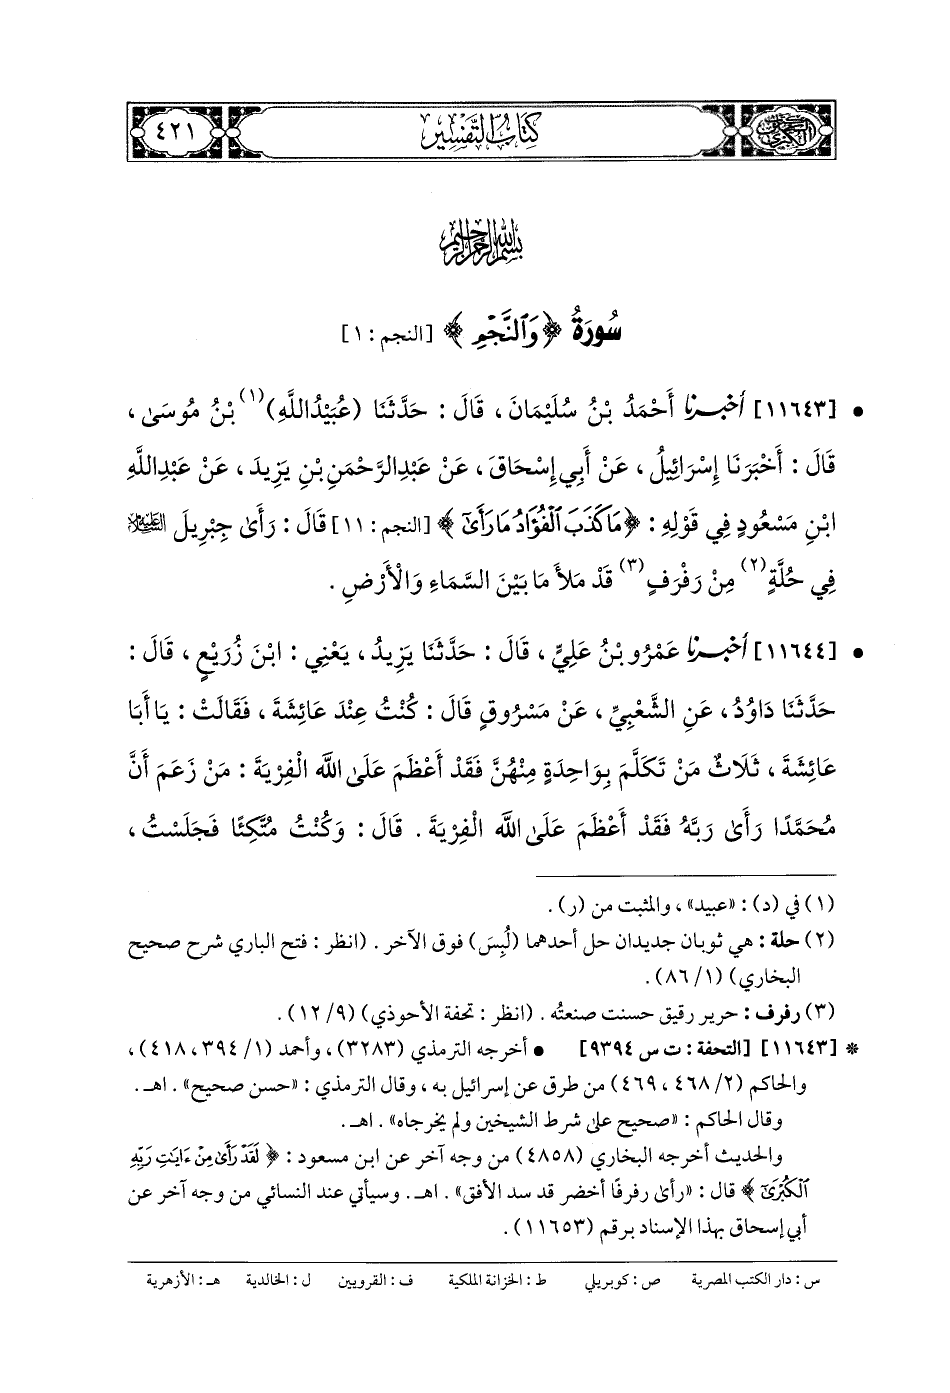 كتاب التفسير
٤٢١
بسم الله الرحمن الرحيم
سُورَةُ ﴿وَٱلنَّجْمِ﴾ [النجم: ١]
• [١١٦٤٣] أَخْبَرَنَا أَحْمَدُ بْنُ سُلَيْمَانَ، قَالَ: حَدَّثَنَا (عُبَيْدُاللَّهِ)(١) بْنُ مُوسَىٰ،
قَالَ: أَخْبَرَنَا إِسْرَائِيلُ، عَنْ أَبِي إِسْحَاقَ، عَنْ عَبْدِالرَّحْمَنِ بْنِ يَزِيدَ، عَنْ عَبْدِاللَّهِ
ابْنِ مَسْعُودٍ فِي قَوْلِهِ: ﴿مَا كَذَبَ ٱلْفُؤَادُ مَا رَأَىٰٓ﴾ [النجم: ١١] قَالَ: رَأَىٰ جِبْرِيلَ عليه السلام
فِي حُلَّةٍ(٢) مِنْ رَفْرَفٍ(٣) قَدْ مَلَأَ مَا بَيْنَ السَّمَاءِ وَالْأَرْضِ.
• [١١٦٤٤] أَخْبَرَنَا عَمْرُو بْنُ عَلِيٍّ، قَالَ: حَدَّثَنَا يَزِيدُ، يَعْنِي: ابْنَ زُرَيْعٍ، قَالَ:
حَدَّثَنَا دَاوُدُ، عَنِ الشَّعْبِيِّ، عَنْ مَسْرُوقٍ قَالَ: كُنْتُ عِنْدَ عَائِشَةَ، فَقَالَتْ: يَا أَبَا
عَائِشَةَ، ثَلَاثٌ مَنْ تَكَلَّمَ بِوَاحِدَةٍ مِنْهُنَّ فَقَدْ أَعْظَمَ عَلَىٰ اللَّهِ الْفِرْيَةَ: مَنْ زَعَمَ أَنَّ
مُحَمَّدًا رَأَىٰ رَبَّهُ فَقَدْ أَعْظَمَ عَلَىٰ اللَّهِ الْفِرْيَةَ. قَالَ: وَكُنْتُ مُتَّكِئًا فَجَلَسْتُ،
(١) في (د): «عبيد»، والمثبت من (ر).
(٢) حلة: هي ثوبان جديدان حل أحدهما (لُبِسَ) فوق الآخر. (انظر: فتح الباري شرح صحيح
البخاري) (١/ ٨٦).
(٣) رفرف: حرير رقيق حسنت صنعتُه. (انظر: تحفة الأحوذي) (٩/ ١٢).
* [١١٦٤٣] [التحفة: ت س ٩٣٩٤] • أخرجه الترمذي (٣٢٨٣)، وأحمد (١/ ٣٩٤، ٤١٨)،
والحاكم (٢/ ٤٦٨، ٤٦٩) من طرق عن إسرائيل به، وقال الترمذي: «حسن صحيح». اهـ.
وقال الحاكم: «صحيح على شرط الشيخين ولم يخرجاه». اهـ.
والحديث أخرجه البخاري (٤٨٥٨) من وجه آخر عن ابن مسعود: ﴿لَقَدْ رَأَىٰ مِنْ ءَايَٰتِ رَبِّهِ
ٱلْكُبْرَىٰٓ﴾ قال: «رأى رفرفًا أخضر قد سد الأفق». اهـ. وسيأتي عند النسائي من وجه آخر عن
أبي إسحاق بهذا الإسناد برقم (١١٦٥٣).
س: دار الكتب المصرية ص: كوبريلي ط: الخزانة الملكية ف: القرويين ل: الخالدية هـ: الأزهرية